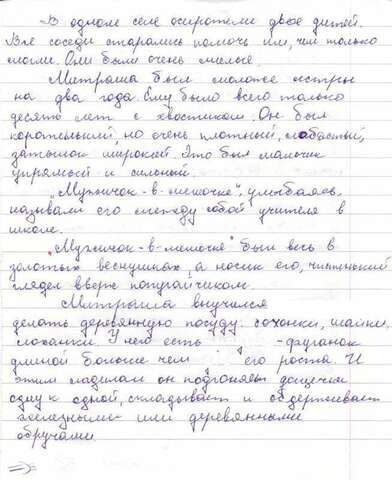 В одном селе осиротели двое дитей.
Все соседи старались помочь им, чем только
могли. Они были очень милые.
Митраша был моложе сестры
на два года. Ему было всего только
десять лет с хвостиком. Он был
коротенький, но очень плотный, лобастый,
затылок широкий. Это был мальчик
упрямый и сильный.
„Мужичок-в-мешочке", улыбаясь,
называли его между собой учителя в
школе.
„Мужичок-в-мешочке" был весь в
золотых веснушках, а носик его, чистенький
глядел вверх попугайчиком.
Митраша выучился
делать деревянную посуду: бочонки, шайки,
лоханки. У него есть -фуганок
длиной больше чем его роста. И
этим ладилом он подгоняет дощечки
одну к одной, складывает и обдерживает
железными или деревянными
обручами.